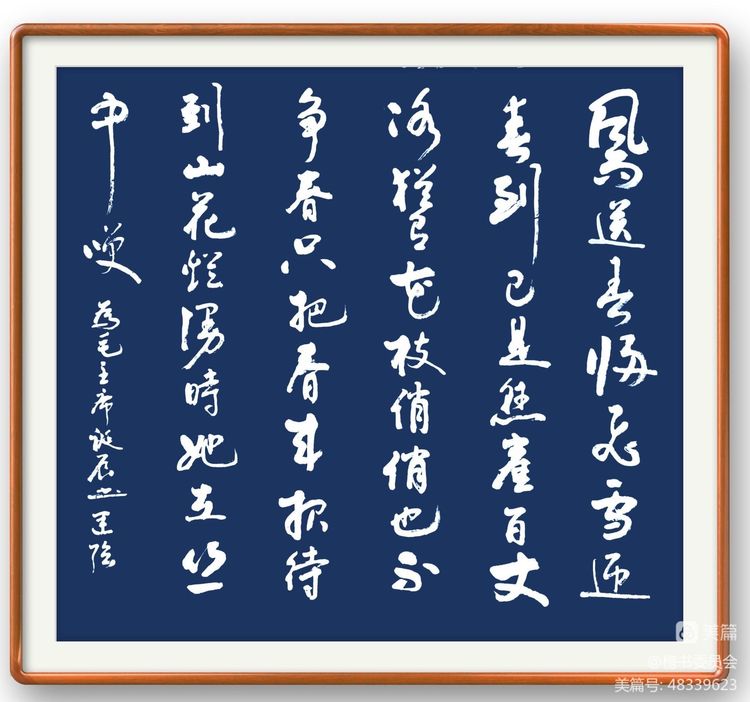 風雨送春歸飛雪迎
春到已是懸崖百丈
冰猶有花枝俏俏也不
争春只把春来报待
到山花烂漫時她在丛
中笑
為毛主席诞辰书
美篇
@楷书委员会
美篇号: 48339623